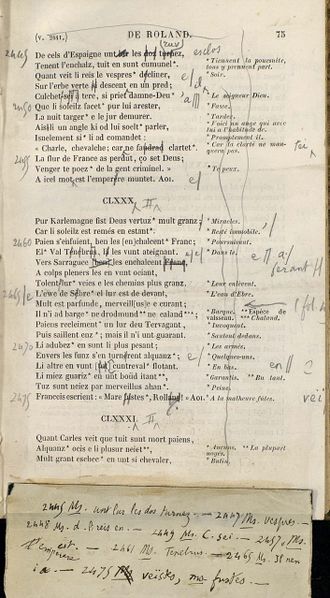 (v. 2441.)
DE ROLAND.
75
De cels d'Espaigne unt les dos turnez,
Tenent l'enchalz, tuit en sunt cumunel*.
* Tiennent la poursuite, tous y prennent part.
Quant veit li reis le vespres* decliner,
* Soir.
Sur l'erbe verte descent en un pred;
Culchet terre, si priet damne-Deu*
* Le seigneur Dieu.
Que li soleilz facet* pur lui arester,
* Fasse.
La nuit targer* e le jur demurer.
* Tarder.
Ais li un angle ki od lui soelt* parler,
* Voici un ange qui avec lui a l'habitude de.
Isnelement* si li ad comandet :
* Promptement il.
« Charle, chevalche; car ne clartet*.
* Car la clarté ne manquera pas.
La flur de France as perdut, ço set Deus;
Venger te poez* de la gent criminel. »
* Tu peux.
A icel mot est l'emperere muntet. Aoi.
CLXXX.
Pur Karlemagne fist Deus vertuz* mult granz;
* Miracles.
Car li soleilz est remés en estant*.
* Resté immobile.
2460
Paien s'enfuient, ben les [en]chalcent* Franc;
* Poursuivent.
El* Val les vunt ateignant.
* Dans le.
Vers Sarraguce les enchalcent
A colps pleners les en vunt ociant,
Tolent* lur veies e les chemins plus granz.
* Leur enlèvent.
2465
L'ewe de Sebre* el lur est de devant,
* L'eau d'Ebre.
Mult est parfunde, merveill[us]e e curant;
Il n'i ad barge* ne drodmund** ne caland***;
* Barque. ** Espèce de vaisseau. *** Chaland.
Paiens recleiment* un lur deu Tervagant,
* Invoquent.
Puis saillent enz*; mais il n'i unt guarant.
* Sautent dedans.
2470
Li adubez* en sunt li plus pesant;
* Les armés.
Envers les funz s'en turnerent alquanz*;
* Quelques-uns.
Li altre en vunt cuntreval* flotant.
* En bas.
Li miez guariz* en unt boüd itant**,
* Garantis. ** Bu tant.
Tuz sunt neiez par merveillus ahan*.
* Peine.
2475
Franceis escrient : « Mare fustes*, Rollant! » Aoi.
* A la malheure fûtes.
CLXXXI.
Quant Carles veit que tuit sunt mort paien,
Alquanz* ocis e li plusur neiet**,
* Aucuns. ** La plupart noyés.
Mult grant eschec* en unt si chevaler,
* Butin.
2445 Ms. unt par les dos turnez. — 2447 Ms. vespres. —
2448 Ms. d. li reis en. — 2449 Ms. C. sei. — 2457 Ms.
l'emperere est. — 2461 Ms. Tenebrus. — 2465 Ms.
— 2475 Ms veïsdes, ms. fustes.